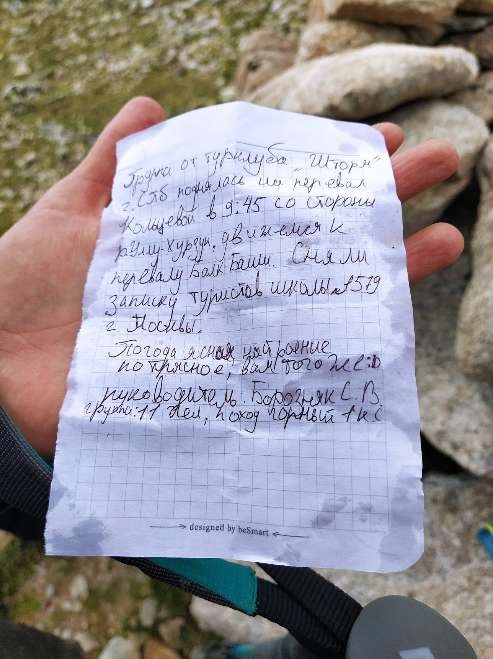 Группа от турклуба "Шторм"
г. СПб поднялась на перевал
Кольцевой в 9:45 со стороны
р. Уллу-Хурзук. движемся к
перевалу Балк-Баши. Сняли
записку туристов школы №1579
г. Москвы.
Погода ясная, настроение
потрясное, вам того же :D
руководитель Борозняк С. В.
группа: 11 чел, поход горный 1 кс
designed by beSmart